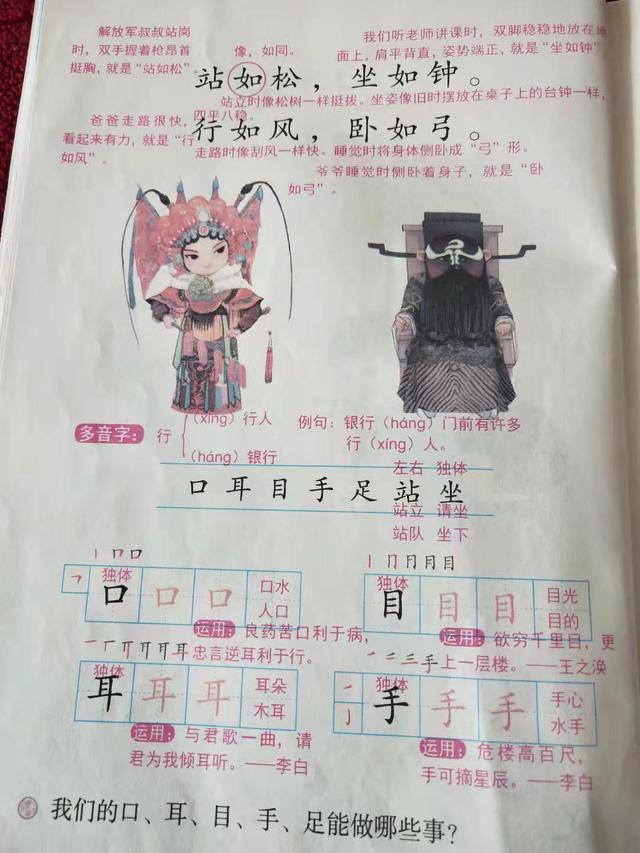 解放军叔叔站岗
时，双手握着枪昂首
挺胸，就是“站如松”。
像，如同。
我们听老师讲课时，双脚稳稳地放在地
面上，肩平背直，姿势端正，就是“坐如钟”
站如松，坐如钟。
站立时像松树一样挺拔。坐姿像旧时摆放在桌子上的台钟一样，
四平八稳。
爸爸走路很快，
看起来有力，就是“行
如风”。
行如风，卧如弓。
走路时像刮风一样快。睡觉时将身体侧卧成“弓”形。
爷爷睡觉时侧卧着身子，就是“卧
如弓”。
多音字：
行
(xíng) 行人
(háng) 银行
例句：银行 (háng) 门前有许多
行 (xíng) 人。
左右 独体
口耳目手足站坐
站立 请坐
站队 坐下
丨 𠃍 口
独体
口 口 口
口水
人口
运用：良药苦口利于病，
忠言逆耳利于行。
丨 冂 冃 月 目
独体
目 目 目
目光
目的
运用：欲穷千里目，更
上一层楼。——王之涣
独体
耳 耳 耳
耳朵
木耳
运用：与君歌一曲，请
君为我倾耳听。——李白
㇒ 二 三 手
独体
手 手 手
手心
水手
运用：危楼高百尺，
手可摘星辰。——李白
我们的口、耳、目、手、足能做哪些事？